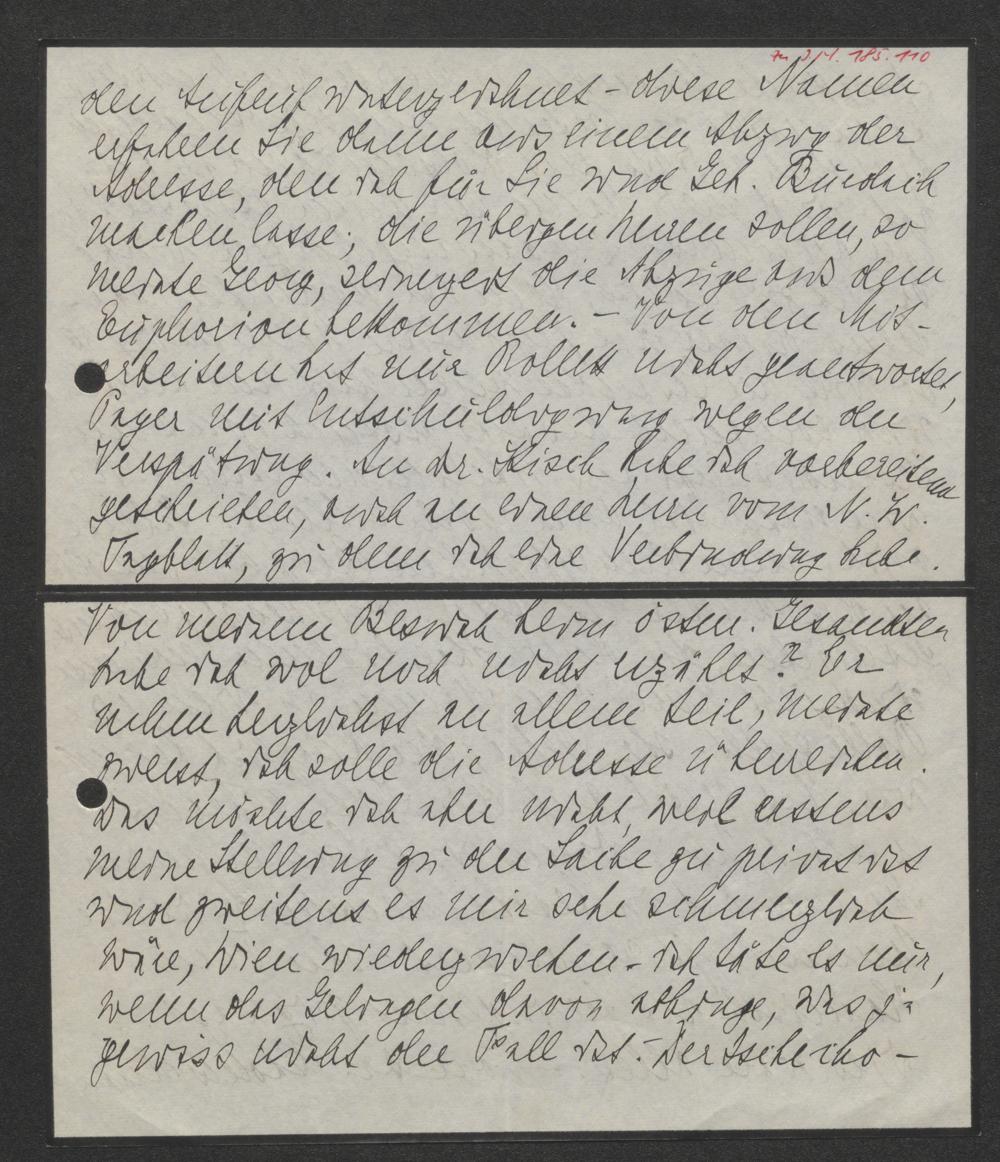 zu 2/1. 185.110
den Aufruf unterzeichnet – diese Namen
erfahren Sie dann aus einem Abzug der
Adresse, den ich für Sie und Geh. Burdach
machen lasse; die übrigen Herren sollen, so
meinte Georg, seinerzeit die Abzüge aus dem
Euphorion bekommen. – Von den Mit-
arbeitern hat nur Rollett nicht geantwortet,
Payer mit Entschuldigung wegen der
Verspätung. An Dr. Kisch habe ich vorbereitend
geschrieben, auch an einen Herrn vom N. W.
Tagblatt, zu dem ich eine Verbindung habe.
Von meinem Besuch beim österr. Gesandten
habe ich wol noch nicht erzählt? Er
nahm herzlichst an allem teil, meinte
zuerst, ich solle die Adresse überreichen.
Das möchte ich aber nicht, weil erstens
meine Stellung zu der Sache zu privat ist
und zweitens es mir sehr schmerzlich
wäre, Wien wiederzusehen – ich täte es nur,
wenn das Gelingen davon abhinge, was ja
gewiss nicht der Fall ist. – Der tschecho-